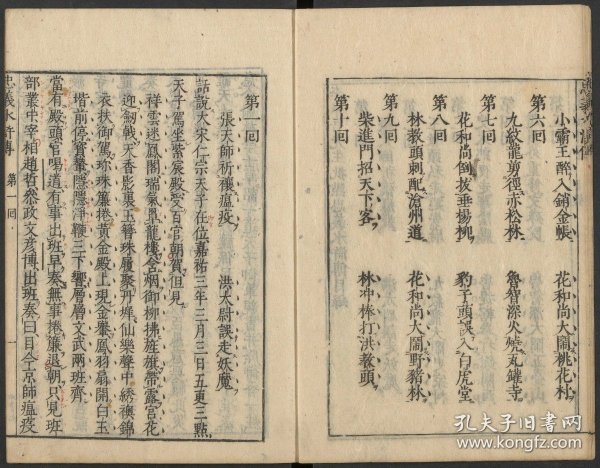 小霸王醉入銷金帳 花和尚大鬧桃花村
第六回
九紋龍剪徑赤松林 魯智深火燒瓦罐寺
第七回
花和尚倒拔垂楊柳 豹子頭誤入白虎堂
第八回
林教頭刺配滄州道 花和尚大鬧野豬林
第九回
柴進門招天下客 林冲棒打洪教頭
第十回
第一回
張天師祈禳瘟疫 洪太尉誤走妖魔
話說大宋仁宗天子在位嘉祐三年三月三日五更三點
天子駕坐紫宸殿受百官朝賀但見
祥雲迷鳳閣瑞氣罩龍樓含烟御柳拂旌旗帶露宮花
迎劍戟天香影裏玉簪珠履聚丹墀仙樂聲中綉襖錦
衣扶御駕珍珠簾捲黃金殿上現金轝鳳羽扇開白玉
堦前停寶輦隱隱淨鞭三下響層層文武兩班齊
當有殿頭官喝道有事出班早奏無事捲簾退朝只見班
部叢中宰相趙哲叅政文彦博出班奏曰目今京師瘟疫
忠義水滸傳 第一回 一
孔夫子旧书网
www.kongfz.com